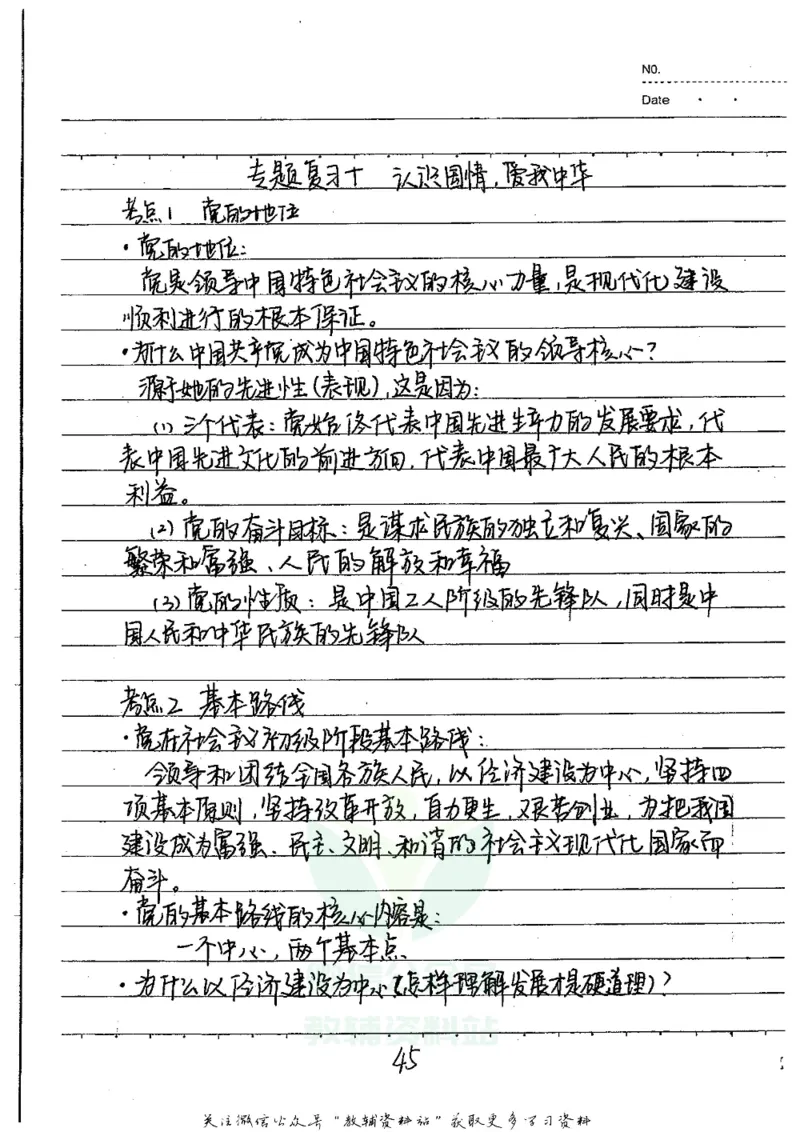 NO.
Date
专题复习十 认识国情,爱我中华
考点1 党的地位
·党的地位:
党是领导中国特色社会主义的核心力量,是现代化建设
顺利进行的根本保证。
·为什么中国共产党成为中国特色社会主义的领导核心?
源于她的先进性(表现),这是因为:
(1)三个代表:党始终代表中国先进生产力的发展要求,代
表中国先进文化的前进方向,代表中国最广大人民的根本
利益。
(2)党的奋斗目标:是谋求民族的独立和复兴、国家的
繁荣和富强、人民的解放和幸福
(3)党的性质:是中国工人阶级的先锋队,同时是中
国人民和中华民族的先锋队
考点2 基本路线
·党在社会主义初级阶段基本路线:
领导和团结全国各族人民,以经济建设为中心,坚持四
项基本原则,坚持改革开放,自力更生,艰苦创业,为把我国
建设成为富强、民主、文明、和谐的社会主义现代化国家而
奋斗。
·党的基本路线的核心内容是:
一个中心,两个基本点
·为什么以经济建设为中心(怎样理解发展才是硬道理)?
教辅资料站
45
关注微信公众号"教辅资料站"获取更多学习资料